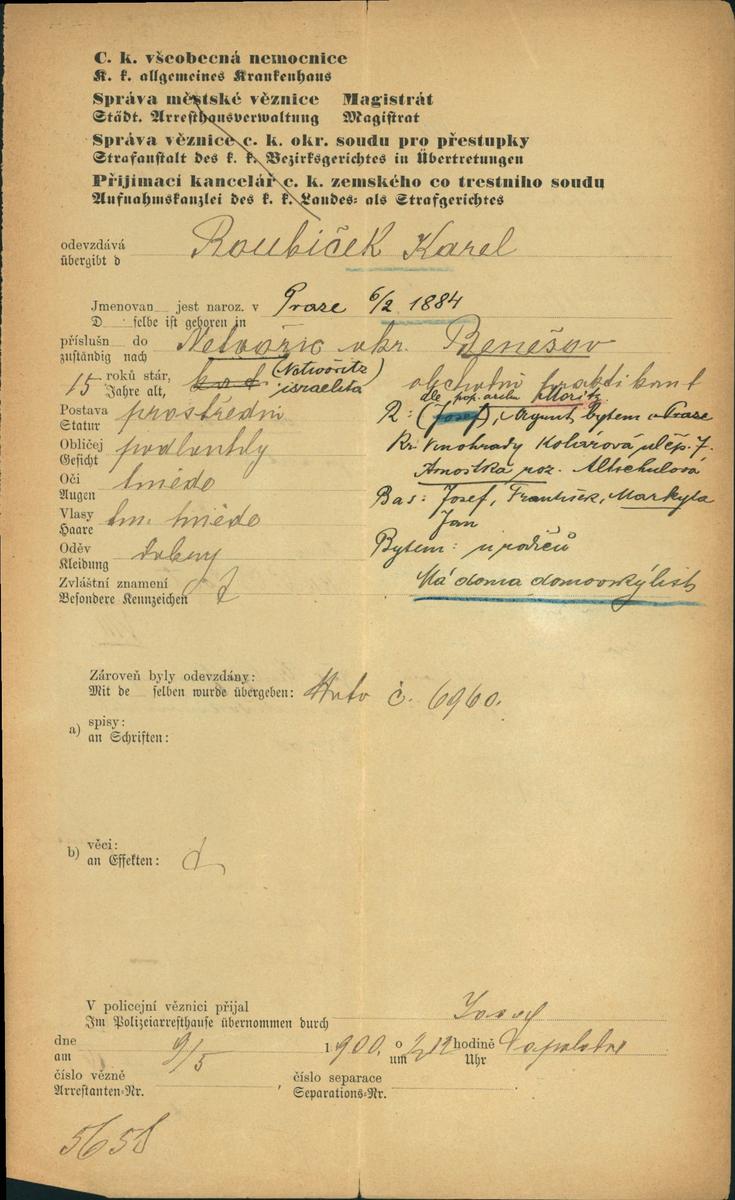 C. k. všeobecná nemocnice
K. k. allgemeines Krankenhaus
Správa městské věznice Magistrát
Städt. Arresthausverwaltung Magistrat
Správa věznice c. k. okr. soudu pro přestupky
Strafanstalt des k. k. Bezirksgerichtes in Übertretungen
Přijímací kancelář c. k. zemského co trestního soudu
Aufnahmskanzlei des k. k. Landes- als Strafgerichtes
odevzdává Roubíček Karel
übergibt d
Jmenovan jest naroz. v Praze 6/2 1884
D selbe ist geboren in
příslušn do Netvořic okr. Benešov
zuständig nach (Netwořitz)
15 roků stár, israelita obchodní praktikant
Jahre alt,
dle pop. archu Moritz
Postava prostřední R: (Josef), Agent, bytem v Praze
Statur
Obličej podlouhlý Kr. Vinohrady Kolárová ul. čp. 7.
Gesicht
Arnoštka roz. Altschulová
Oči hnědé
Augen Bas: Josef, František, Markyta
Vlasy tm. hnědé Jan
Haare
Oděv dobrý Bytem: u rodičů
Kleidung
Zvláštní znamení Má doma domovský list
Besondere Kennzeichen
Zároveň byly odevzdány:
Mit de selben wurde übergeben: č. 6960.
a) spisy:
an Schriften:
b) věci:
an Effekten:
V policejní věznici přijal
Im Polizeiarresthause übernommen durch
dne 9/5 1900. o 2 1/2 hodině
am um Uhr
číslo vězně , číslo separace
Arrestanten-Nr. Separations-Nr.
5658